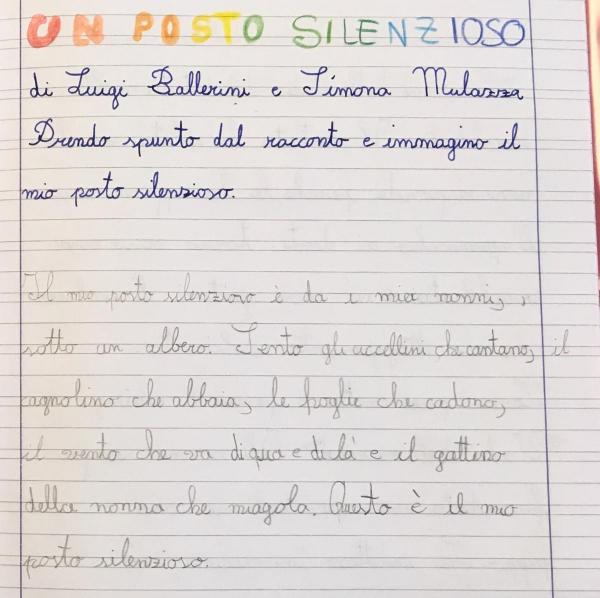 UN POSTO SILENZIOSO
di Luigi Ballerini e Simona Mulazza
Prendo spunto dal racconto e immagino il
mio posto silenzioso.
Il mio posto silenzioso è da i miei nonni,
sotto un albero. Sento gli uccellini che cantano, il
cagnolino che abbaia, le foglie che cadono,
il vento che va di qua e di là e il gattino
della nonna che miagola. Questo è il mio
posto silenzioso.